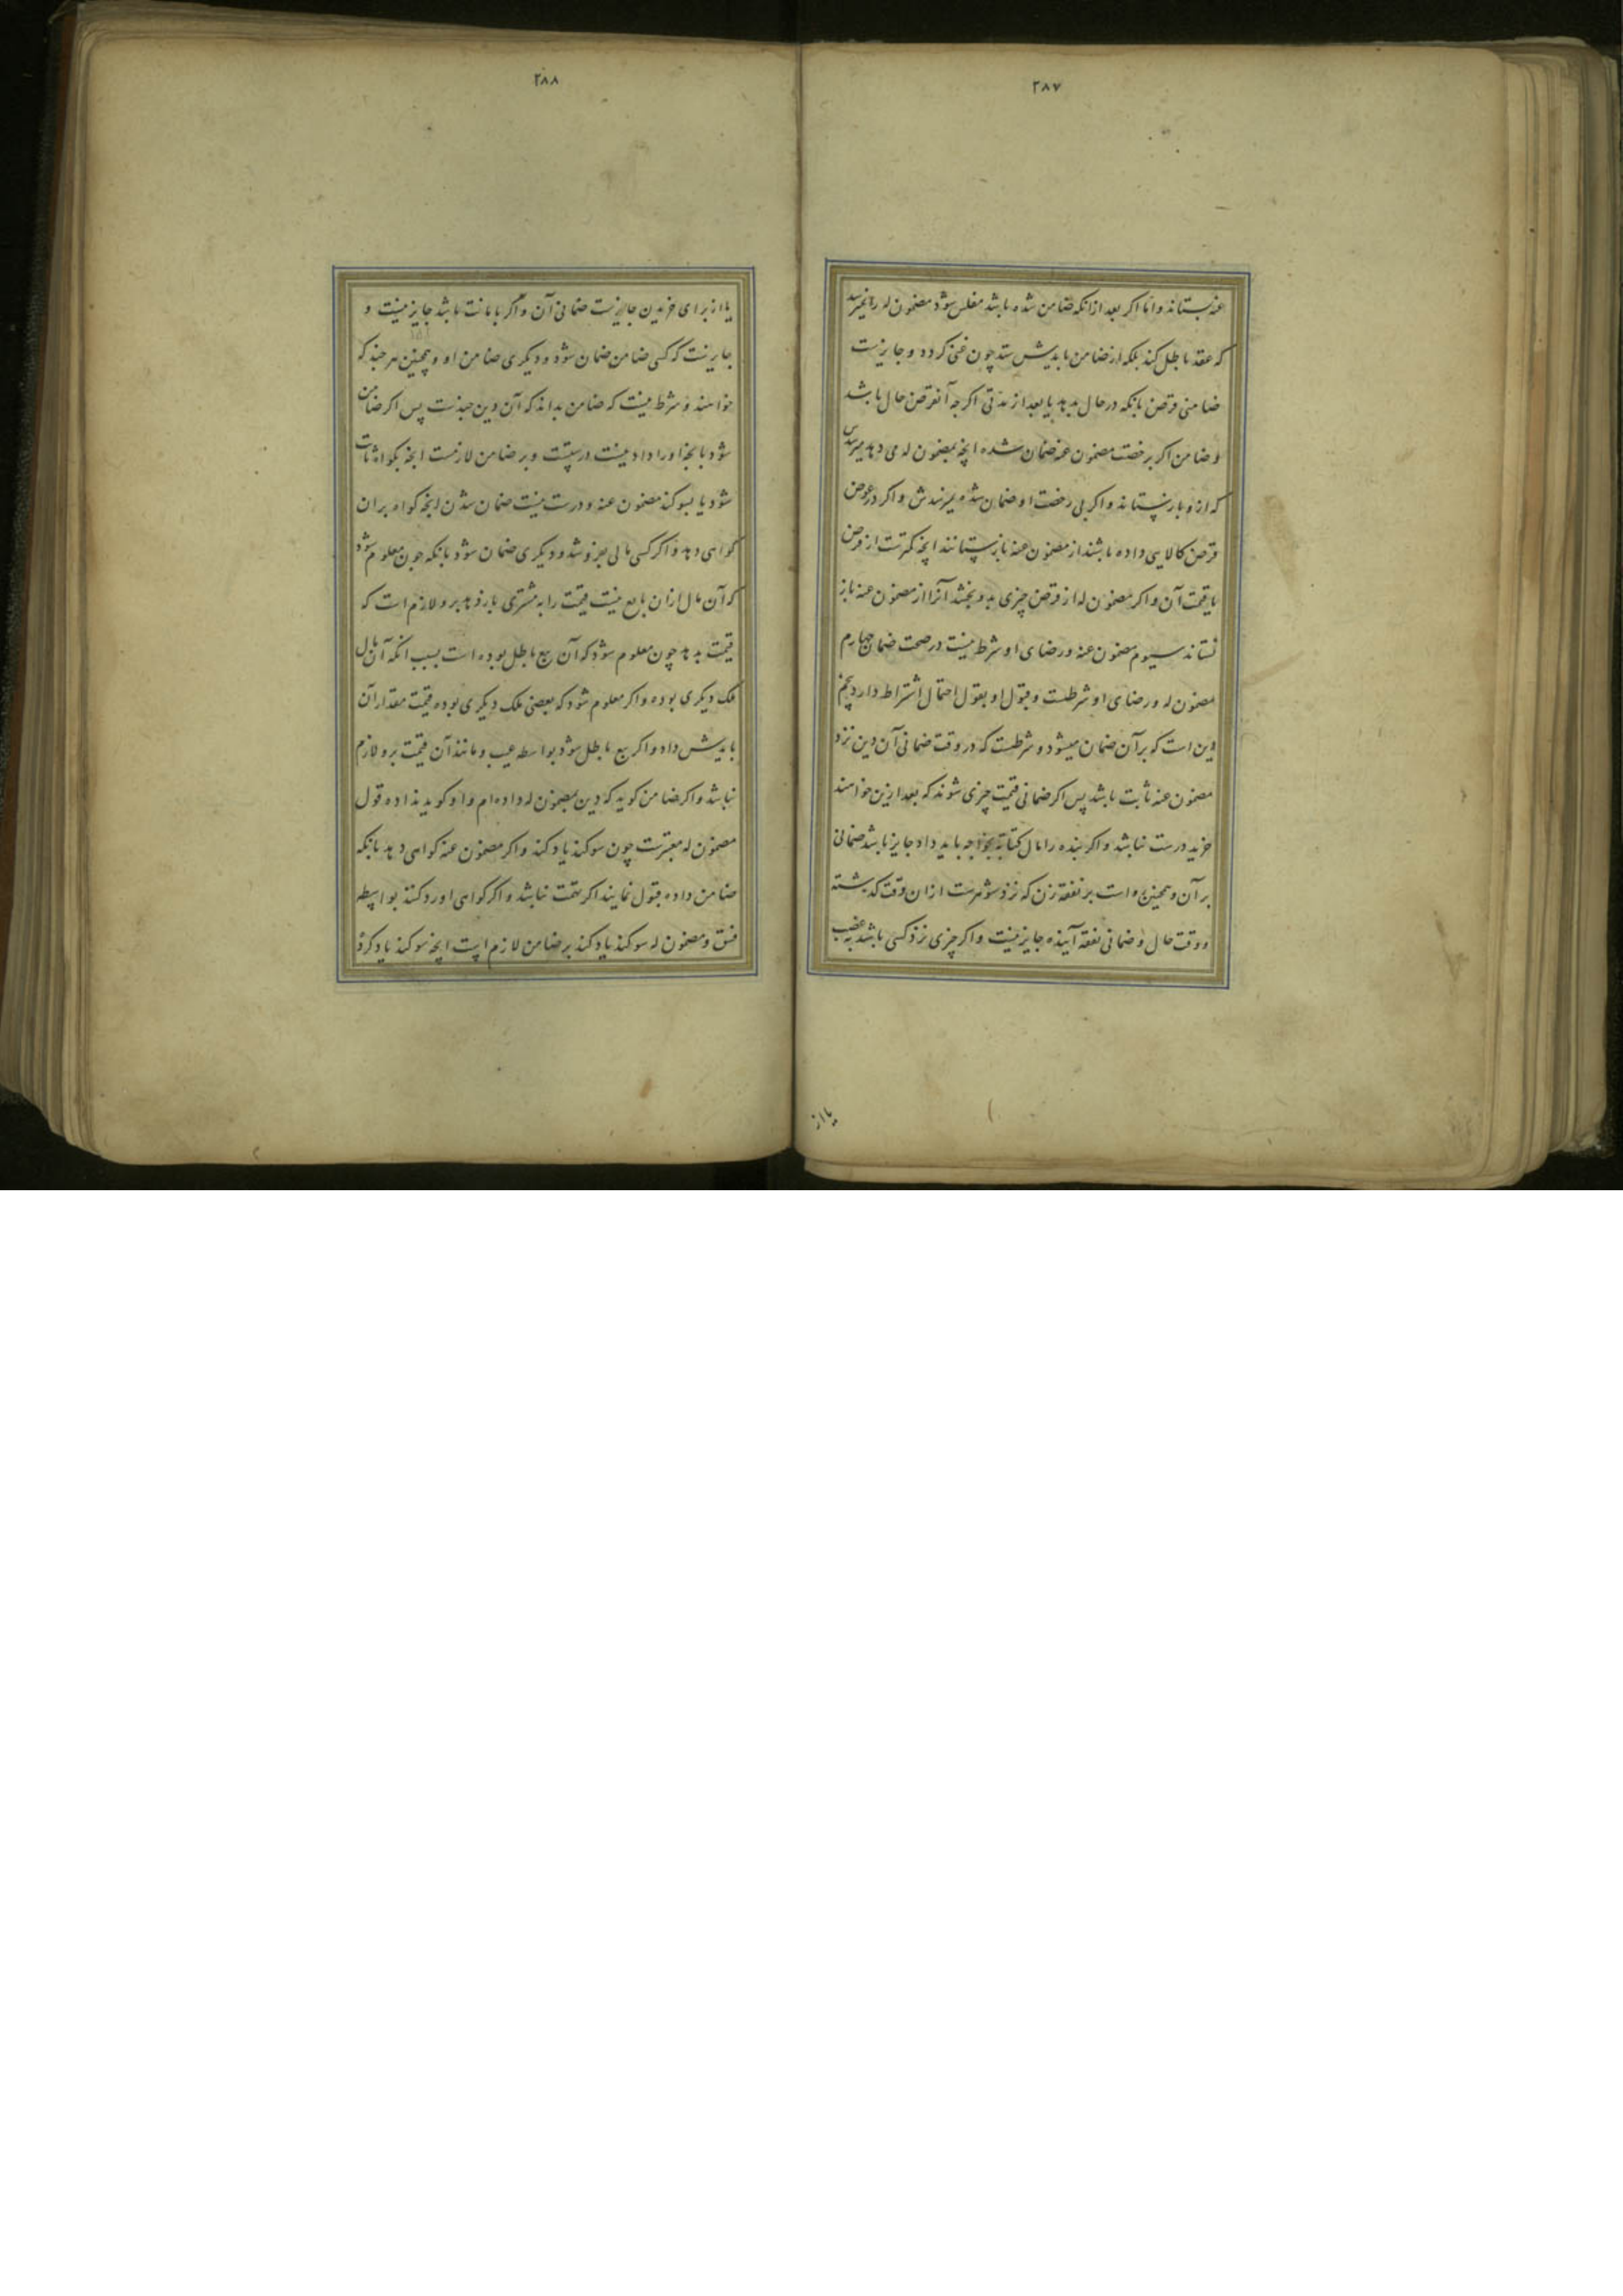 ۲۸۷
عنه بستاند و اما اکر بعد ازانکه ضامن شده باشد مفلس شود مضمون له را نمیرسد
که عقد باطل کند بلکه از ضامن بایدش ستد چون غنی کردد و جایزست
ضامنی قرض بانکه در حال بدهد یا بعد از مدتی اکر چه آنقرض حال باشد
و ضامن اکر برخصت مضمون عنه ضمان شده انچه بمضمون له می دهد میرسدش
که ازو بازستاند و اکر بی رخصت او ضمان شده نمیرسدش و اکر در عوض
قرض کالایی داده باشند از مضمون عنه بازستانند انچه کمترست از قرض
یا قیمت آن و اکر مضمون له از قرض چیزی بدو بخشد آنرا از مضمون عنه باز
نستاند سیوم مضمون عنه و رضای او شرط نیست در صحت ضمان چهارم
مضمون له و رضای او شرطست و قبول او بقول احتمال اشتراط دارد پنجم
دین است که بر آن ضمان میشود و شرطست که در وقت ضمانی آن دین نزد
مضمون عنه ثابت باشد پس اکر ضمانی قیمت چیزی شوند که بعد ازین خواهند
خرید درست نباشد و اکر بنده را مال کتابة بخواجه باید داد جایز باشد ضمانی
بر آن و همچنین است بر نفقه زن که نزد شوهرست ازان وقت کذشته
و وقت حال و ضمانی نفقه آینده جایز نیست و اکر چیزی نزد کسی باشد بغصب
یا از
۲۸۸
یا از برای خریدن جایزست ضمانی آن و اکر بامانت باشد جایز نیست و
جایزست که کسی ضامن ضمان شود و دیکری ضامن او و همچنین هر چند که
خواهند و شرط نیست که ضامن بداند که آن دین چندست پس اکر ضامن
شود بانچه او را داد نیست درستست و بر ضامن لازمست انچه بکواه ثابت
شود یا بسوکند مضمون عنه و درست نیست ضمان شدن انچه کواه بران
کواهی دهد و اکر کسی مالی بفروشد و دیکری ضمان شود بانکه چون معلوم شود
که آن مال ازان بایع نیست قیمت را به مشتری باز دهد برو لازم است که
قیمت بدهد چون معلوم شود که آن بیع باطل بوده است بسبب انکه آن مال
ملک دیکری بوده و اکر معلوم شود که بعضی ملک دیکری بوده قیمت مقدار آن
بایدش داد و اکر بیع باطل شود بواسطه عیب و مانند آن قیمت برو لازم
نباشد و اکر ضامن کوید که دین بمضمون له داده‌ام و او کوید نداده قول
مضمون له معتبرست چون سوکند یاد کند و اکر مضمون عنه کواهی دهد بانکه
ضامن داده قبول نمایند اکر تهمت نباشد و اکر کواهی او رد کنند بواسطه
فسق و مضمون له سوکند یاد کند بر ضامن لازم است انچه سوکند یاد کرد